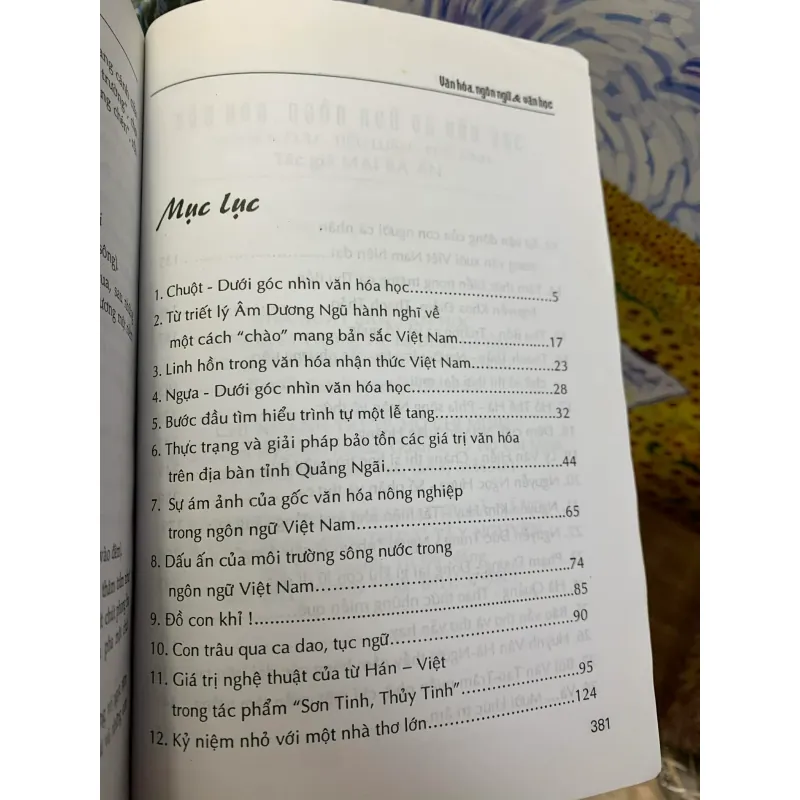 Văn hóa, ngôn ngữ & văn học
Mục lục
1. Chuột - Dưới góc nhìn văn hóa học..............................5
2. Từ triết lý Âm Dương Ngũ hành nghĩ về
một cách “chào” mang bản sắc Việt Nam....................17
3. Linh hồn trong văn hóa nhận thức Việt Nam.................23
4. Ngựa - Dưới góc nhìn văn hóa học..............................28
5. Bước đầu tìm hiểu trình tự một lễ tang.........................32
6. Thực trạng và giải pháp bảo tồn các giá trị văn hóa
trên địa bàn tỉnh Quảng Ngãi......................................44
7. Sự ám ảnh của gốc văn hóa nông nghiệp
trong ngôn ngữ Việt Nam...........................................65
8. Dấu ấn của môi trường sông nước trong
ngôn ngữ Việt Nam...................................................74
9. Đồ con khỉ !..............................................................85
10. Con trâu qua ca dao, tục ngữ.....................................90
11. Giá trị nghệ thuật của từ Hán – Việt
trong tác phẩm “Sơn Tinh, Thủy Tinh”........................95
12. Kỷ niệm nhỏ với một nhà thơ lớn..............................124
381